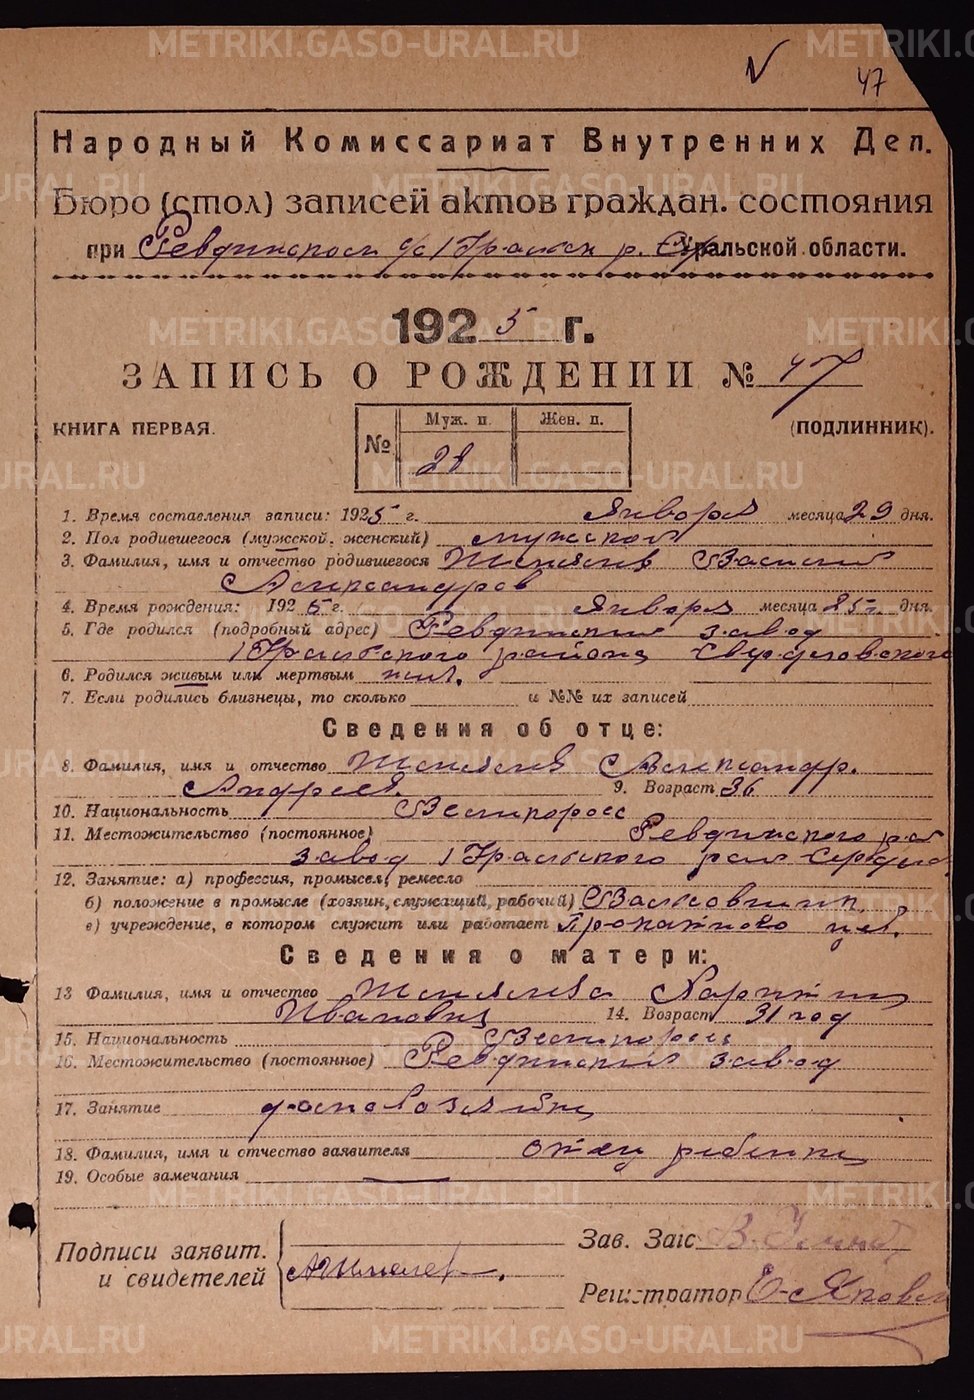 47
Народный Комиссариат Внутренних Дел.
Бюро (стол) записей актов граждан. состояния
при Ревдинском с/с Уральской области.
1925 г.
ЗАПИСЬ О РОЖДЕНИИ № 47
КНИГА ПЕРВАЯ. (ПОДЛИННИК).
№ Муж. п. Жен. п.
28
1. Время составления записи: 1925 г. Января месяца 29 дня.
2. Пол родившегося (мужской, женский) мужской
3. Фамилия, имя и отчество родившегося Василий
Александров
4. Время рождения: 1925 г. Января месяца 25 дня.
5. Где родился (подробный адрес) Ревдинский завод
района Свердловского
6. Родился живым или мертвым жив.
7. Если родились близнецы, то сколько и №№ их записей
Сведения об отце:
8. Фамилия, имя и отчество Александр.
Андреев. 9. Возраст 36
10. Национальность Великоросс
11. Местожительство (постоянное) Ревдинского
завод
12. Занятие: а) профессия, промысел, ремесло
б) положение в промысле (хозяин, служащий, рабочий) Вальцовщик
в) учреждение, в котором служит или работает Прокатного цех.
Сведения о матери:
13 Фамилия, имя и отчество
Ивановна 14. Возраст 31 год
15. Национальность Великоросс
16. Местожительство (постоянное) Ревдинский завод
17. Занятие домохозяйка
18. Фамилия, имя и отчество заявителя отец ребенка
19. Особые замечания
Подписи заявит.
и свидетелей
Зав. Загс
Регистратор
METRIKI.GASO-URAL.RU